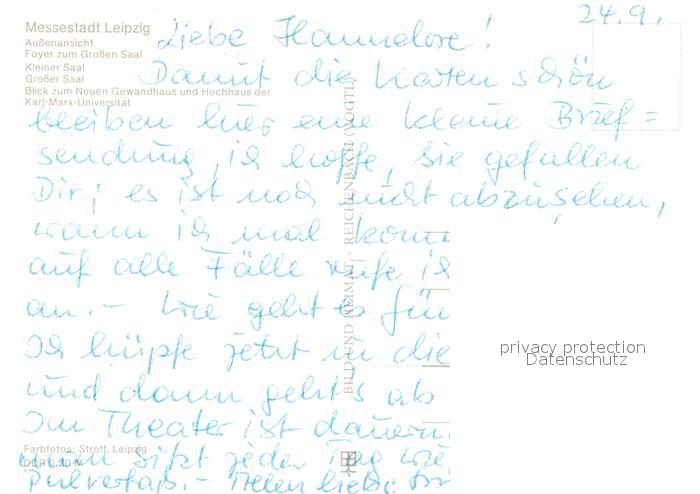 24.9.
Messestadt Leipzig
Außenansicht
Foyer zum Großen Saal
Kleiner Saal
Großer Saal
Blick zum Neuen Gewandhaus und Hochhaus der
Karl-Marx-Universität
Liebe Hannelore!
Damit die Karten schön
bleiben hier eine kleine Brief=
sendung, ich hoffe, sie gefallen
Dir; es ist noch nicht abzusehen,
wann ich mal
auf alle Fälle rufe
an. – Wie geht es
Ich hüpfe jetzt in die
und dann geht's ab
Im Theater ist
man sitzt jeden Tag wie
Pulverfaß. – Vielen liebe
BILD UND HEIMAT · REICHENBACH (VOGTL)
Farbfotos: Stroff, Leipzig
DDR 0,40 M
privacy protection
Datenschutz